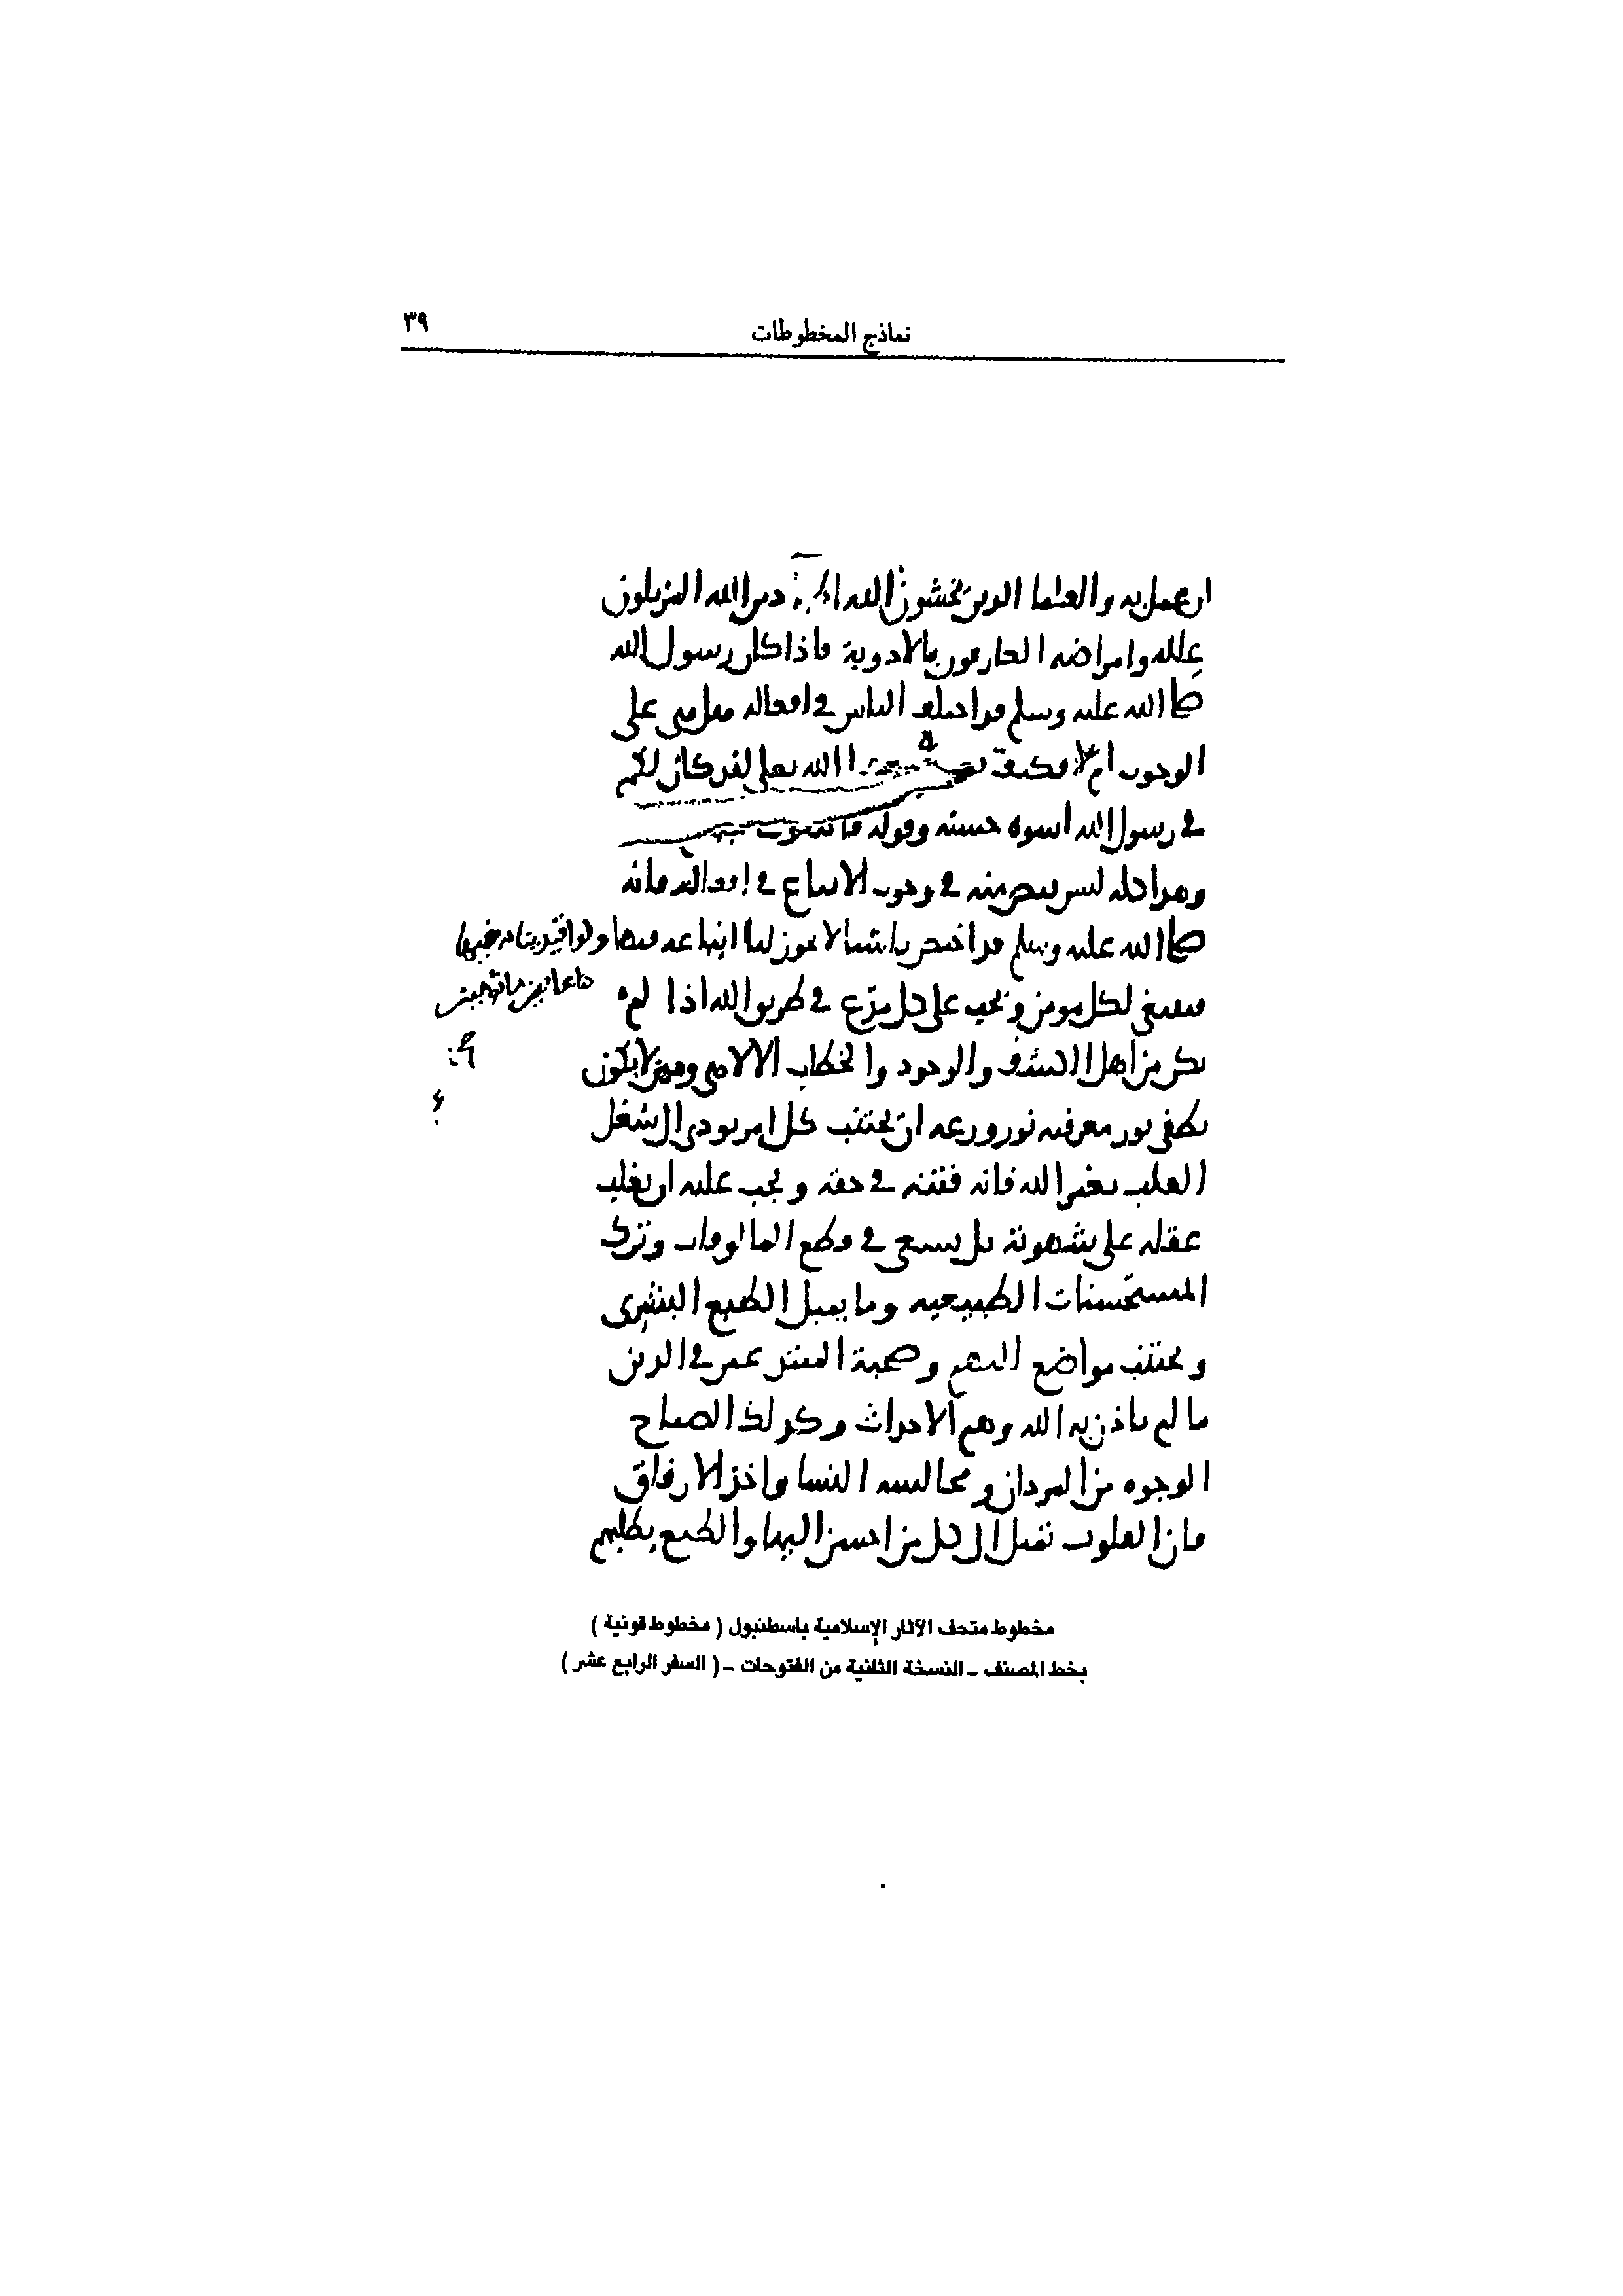 ٣٩
نماذج المخطوطات
ان عمل به والعلما الذين يخشون الله دين الله المزيلون
علله وامراضه العارفون بالادوية فاذا كان رسول الله
صلى الله عليه وسلم قد اختلف الناس في افعاله هل هي على
الوجوب ام لا فكيف الله تعلى لقد كان لكم
في رسول الله اسوة حسنه وقوله فاتبعوني
وهذا كله ليس بنص منه في وجوب الاتباع في افعاله فانه
صلى الله عليه وسلم قد اختص باشيا لا يجوز لنا اتباعه فيها ولو اقتدينا به فيها
فينبغي لكل مومن ويجب على كل مدّع في طريق الله اذا لم
يكن من اهل الكشف والوجود والخطاب الالاهي وممن لا يكون
يطفي نور معرفته نور ورعه ان يجتنب كل امر يودي الى شغل
القلب بغير الله فانه فتنة في حقه ويجب عليه ان يغلب
عقله على شهوته بل يسعى في قطع المالوفات وترك
المستحسنات الطبيعيه وما يميل الطبع البشرى
ويجتنب مواضع التهم وصحبة المبتدعين في الدين
ما لم ياذن به الله وهم الاحداث وكذلك الصباح
الوجوه من المردان ومجالسه النسا واخذ الارفاق
فان القلوب تميل الى كل من احسن اليها والطبع يطلبهم
مخطوط متحف الآثار الإسلامية باسطنبول ( مخطوط قونية )
بخط المصنف ـ النسخة الثانية من الفتوحات ـ ( السفر الرابع عشر )